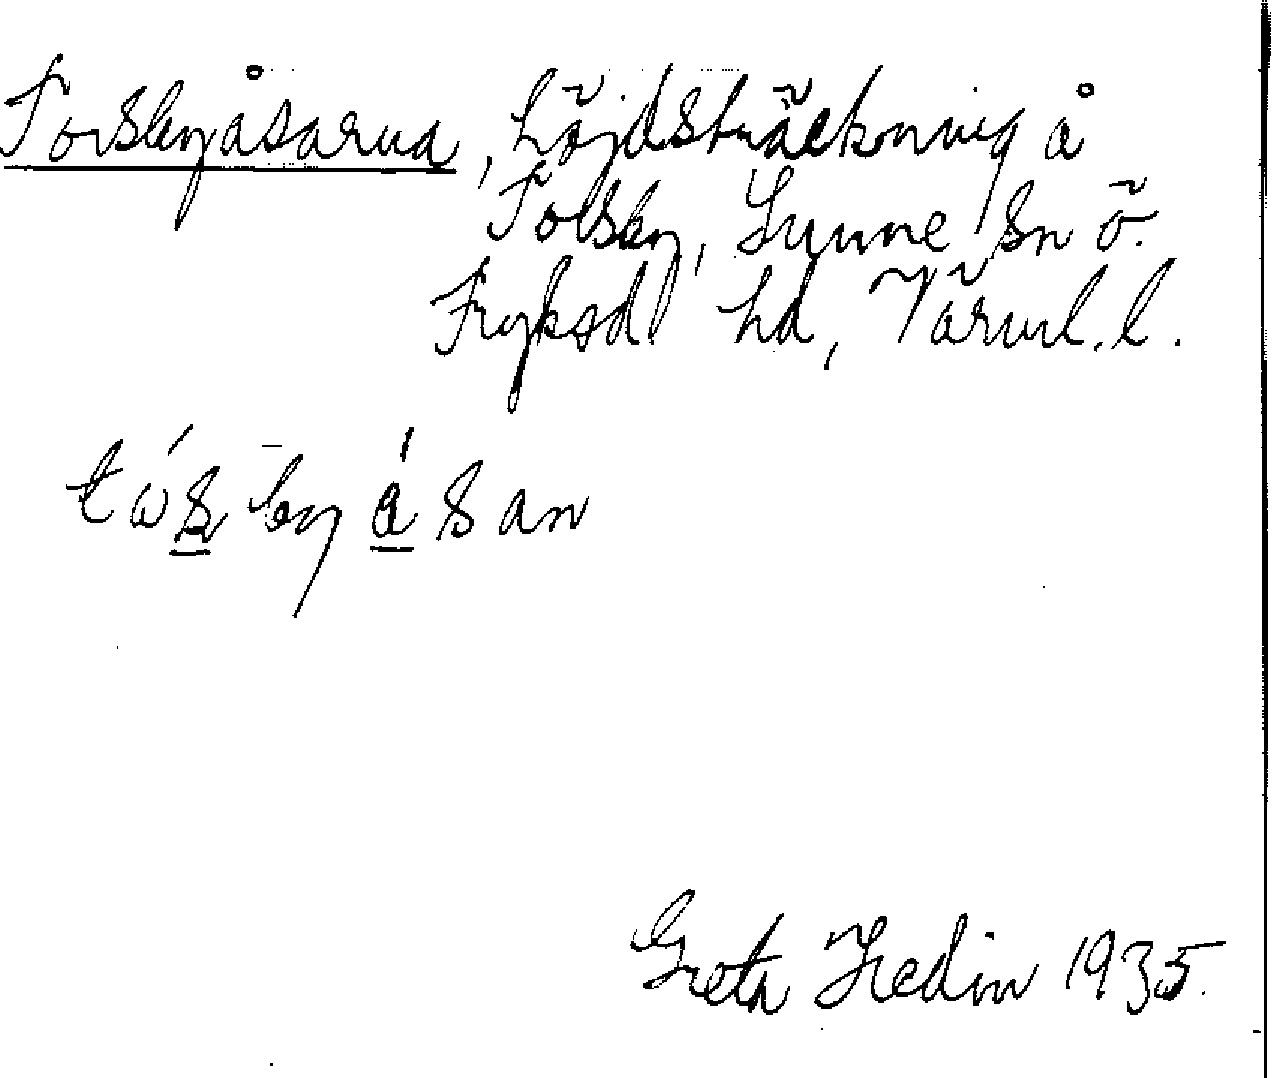 Torsbyåsarna, höjdsträckning å
Tolsby, Sunne sn ö.
Fryksd. hd, Värml. l.
tω´s by á s an
Greta Hedin 1935.